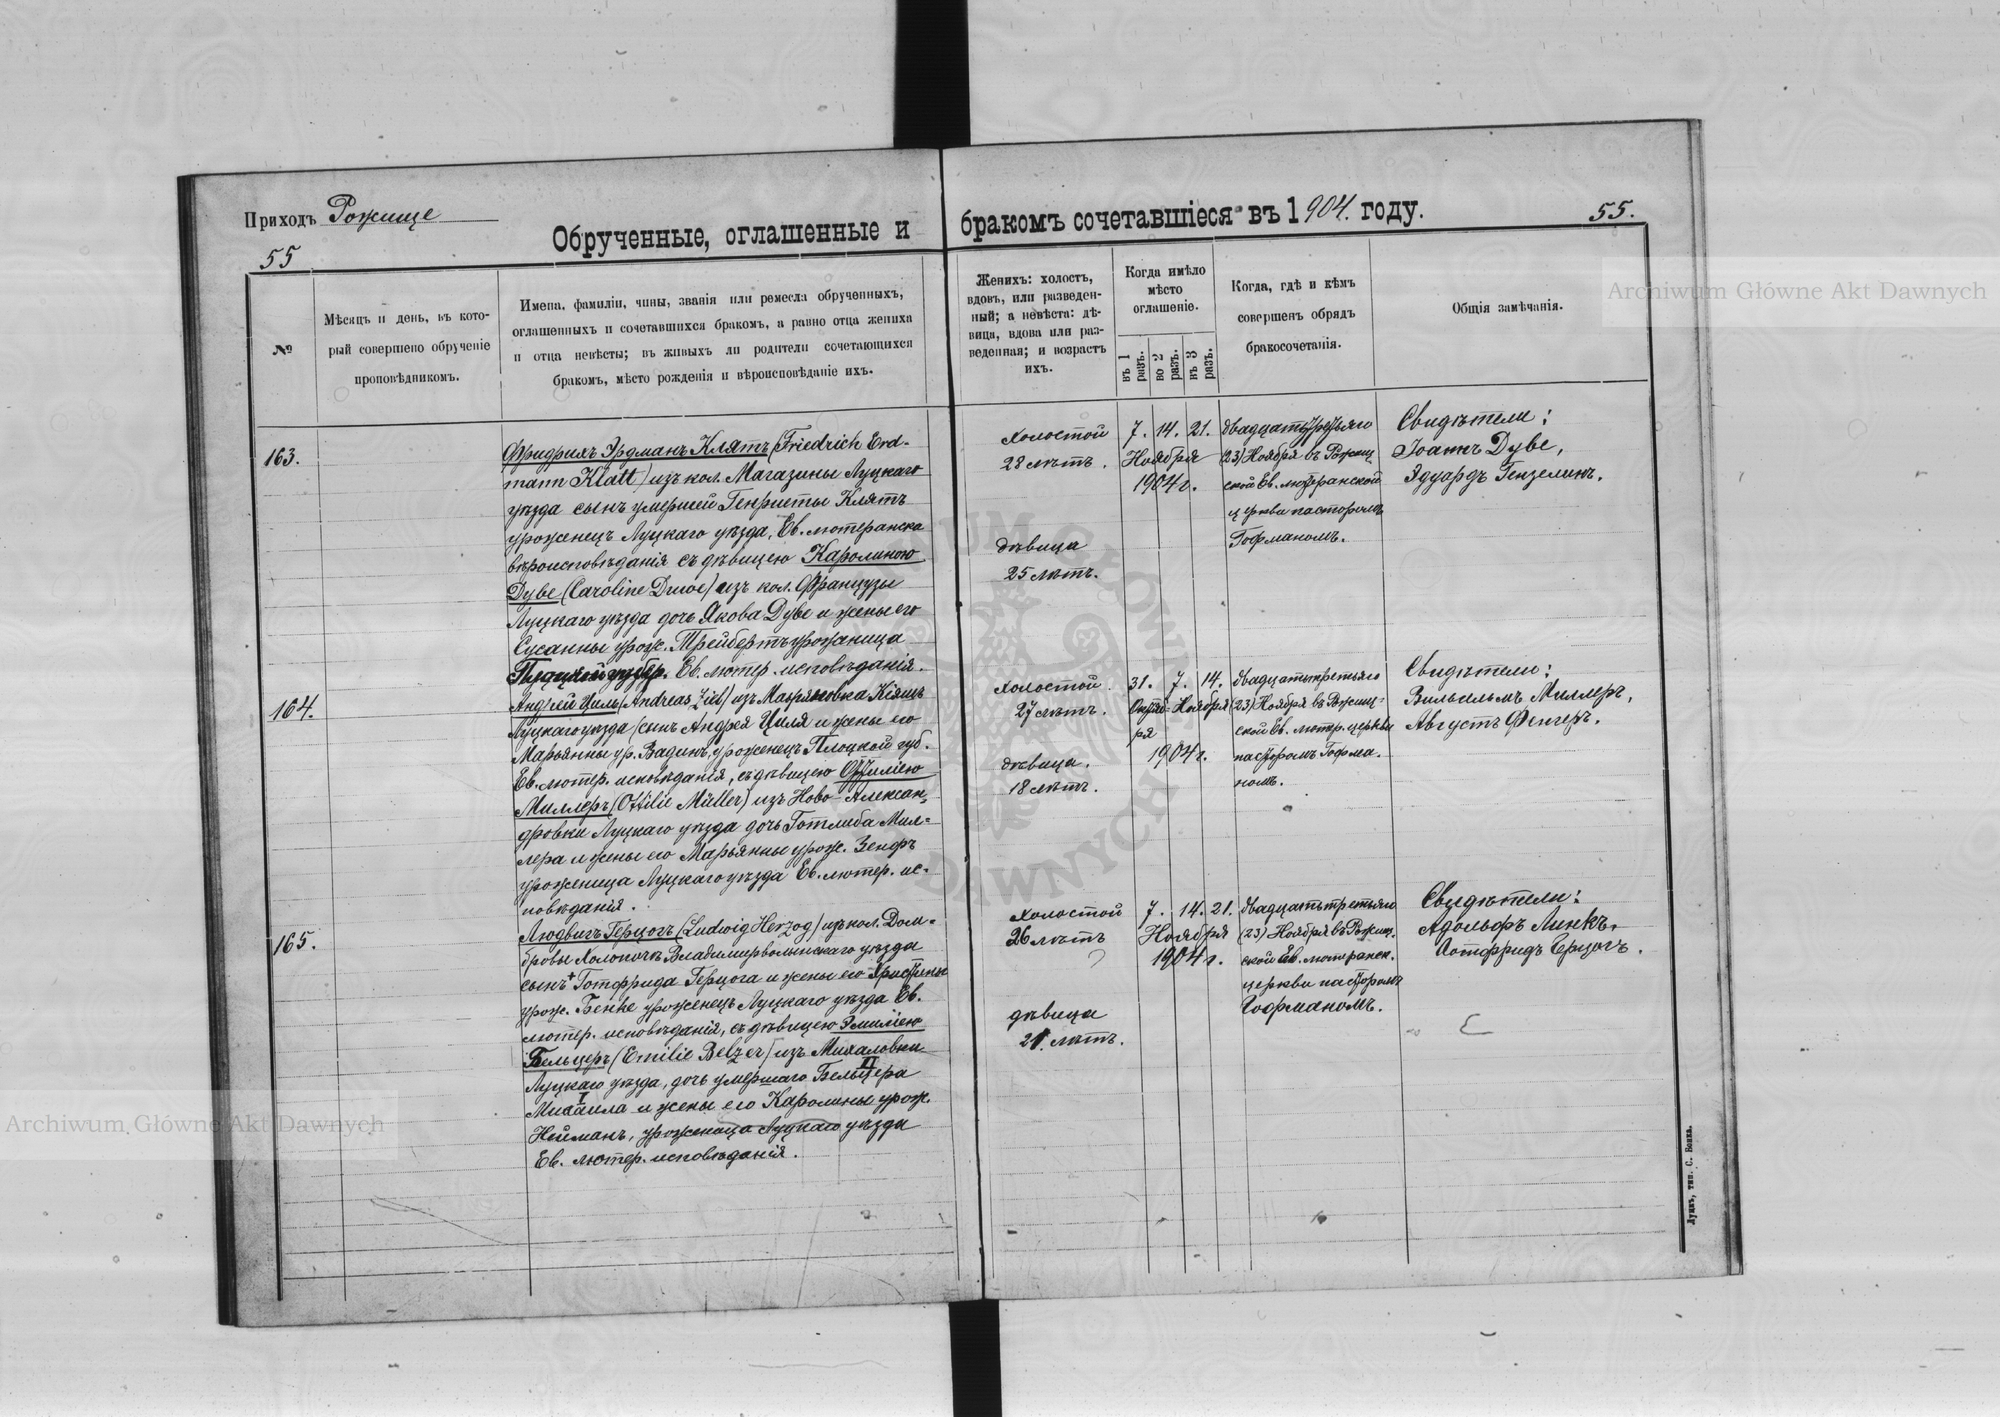 Приходъ Рожище
55
Обрученные, оглашенные и
бракомъ сочетавшіеся въ 1904. году.
55.
№
Мѣсяцъ и день, въ кото-
рый совершено обрученіе
проповѣдникомъ.
Имена, фамиліи, чины, званія или ремесла обрученныхъ,
оглашенныхъ и сочетавшихся бракомъ, а равно отца жениха
и отца невѣсты; въ живыхъ ли родители сочетающихся
бракомъ, мѣсто рожденія и вѣроисповѣданіе ихъ.
Женихъ: холостъ,
вдовъ, или разведен-
ный; а невѣста: дѣ-
вица, вдова или раз-
веденная; и возрастъ
ихъ.
Когда имѣло
мѣсто
оглашеніе.
въ 1 разъ.
во 2 разъ.
въ 3 разъ.
Когда, гдѣ и кѣмъ
совершенъ обрядъ
бракосочетанія.
Общія замѣчанія.
163.
Фридрихъ Эрдманъ Клятъ (Friedrich Erd-
mann Klatt) изъ кол. Магазины Луцкаго
уѣзда сынъ умершей Генріеты Клятъ
уроженецъ Луцкаго уѣзда, Ев. лютеранска
вѣроисповѣданія съ дѣвицею Каролиною
Дуве (Caroline Duwe) изъ кол. Французы
Луцкаго уѣзда дочь Якова Дуве и жены его
Сусанны урож. Трейбертъ уроженица
Ев. лютер. исповѣданія.
Холостой
28 лѣтъ.
дѣвица
25 лѣтъ.
7. 14. 21.
Ноября
1904 г.
двадцатьтретьяго
(23) Ноября въ Рожищ
ской Ев. лютеранской
церкви пасторомъ
Гофманомъ.
Свидѣтели:
Іоаннъ Дуве,
Эдуардъ Гензелинъ.
164.
Андрей Циль (Andreas Ziel) изъ
Луцкаго уѣзда (сынъ Андрея Циля и жены его
Марьянны ур. Вадинъ, уроженецъ Плоцкой губ.
Ев. лютер. исповѣданія, съ дѣвицею Оттиліею
Миллеръ (Ottilie Müller) изъ Ново-Алексан-
дровки Луцкаго уѣзда дочь Готлиба Мил-
лера и жены его Марьянны урож. Зенфъ
уроженица Луцкаго уѣзда Ев. лютер. ис-
повѣданія.
Холостой
27 лѣтъ.
дѣвица.
18 лѣтъ.
31. 7. 14.
Октяб- Ноября
ря
1904 г.
двадцатьтретьяго
(23) Ноября въ Рожищ-
ской Ев. лютер. церкви
пасторомъ Гофма-
номъ.
Свидѣтели:
Вильгельмъ Миллеръ,
Августъ Фенгеръ.
165.
Людвигъ Герцогъ (Ludwig Herzog) изъ кол. Дом-
бровы Холопичъ Владимирволынскаго уѣзда
сынъ + Готфрида Герцога и жены его Христины
урож. Бенке уроженецъ Луцкаго уѣзда Ев.
лютер. исповѣданія, съ дѣвицею Эмиліею
Бельцеръ (Emilie Belzer) изъ Михаловки
Луцкаго уѣзда, дочь умершаго Бельцера II
Михаила I и жены его Каролины урож.
Нейманъ, уроженица Луцкаго уѣзда
Ев. лютер. исповѣданія.
Холостой
26 лѣтъ
дѣвица
21. лѣтъ.
7. 14. 21.
Ноября
1904 г.
двадцатьтретьяго
(23) Ноября въ Рожищ-
ской Ев. лютеранск.
церкви пасторомъ
Гофманомъ.
Свидѣтели:
Адольфъ Линкъ,
Готфридъ Ерцогъ.
Луцкъ, тип. С. Бонка.
Archiwum Główne Akt Dawnych
Archiwum Główne Akt Dawnych